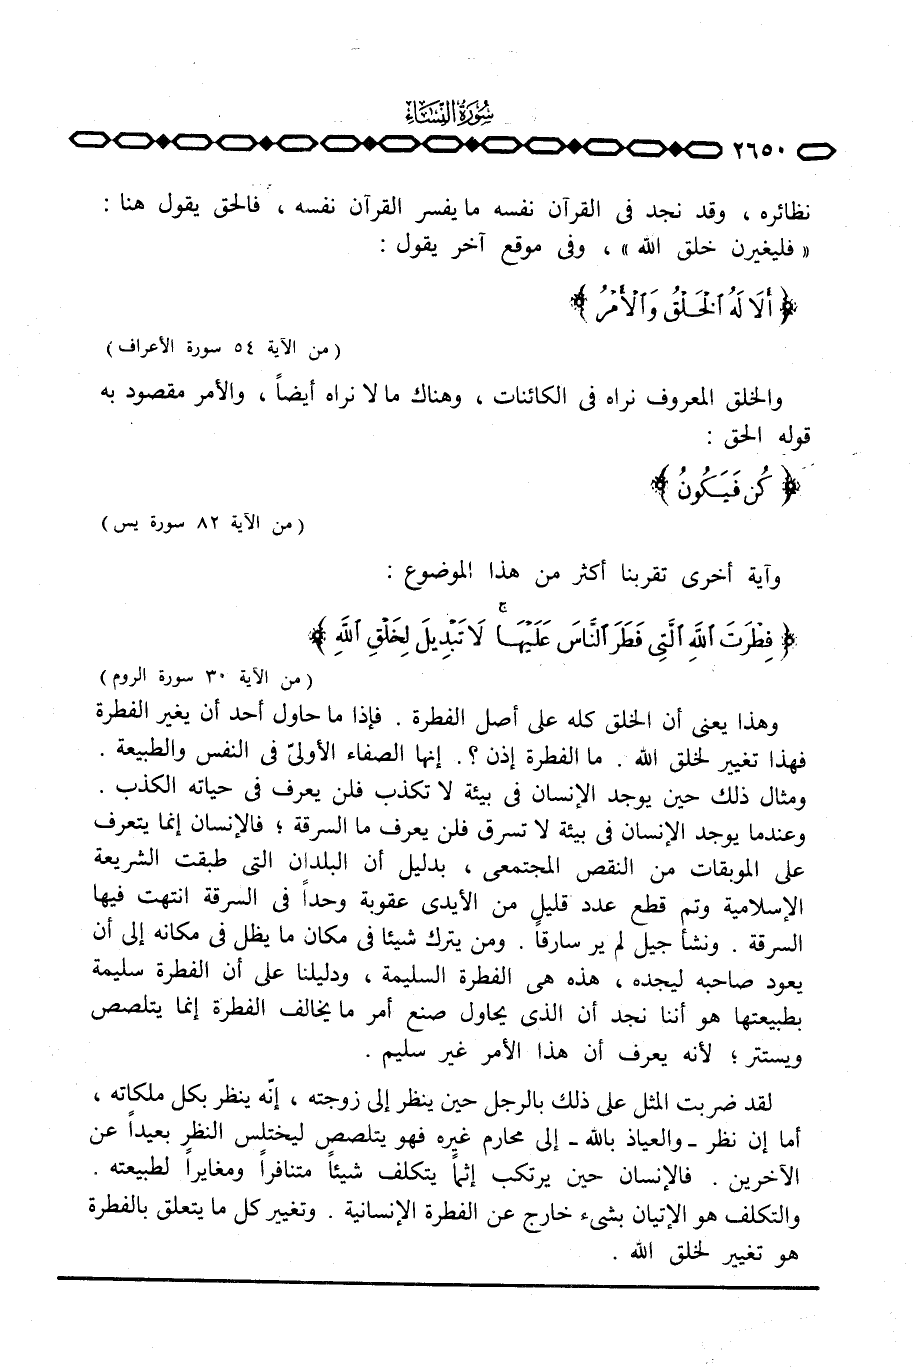 سُورَةُ النِّسَاءِ
٢٦٥٠
نظائره ، وقد نجد فى القرآن نفسه ما يفسر القرآن نفسه ، فالحق يقول هنا :
« فليغيرن خلق الله » ، وفى موقع آخر يقول :
﴿ أَلَا لَهُ ٱلْخَلْقُ وَٱلْأَمْرُ ﴾
( من الآية ٥٤ سورة الأعراف )
والخلق المعروف نراه فى الكائنات ، وهناك ما لا نراه أيضاً ، والأمر مقصود به
قوله الحق :
﴿ كُن فَيَكُونُ ﴾
( من الآية ٨٢ سورة يس )
وآية أخرى تقربنا أكثر من هذا الموضوع :
﴿ فِطْرَتَ ٱللَّهِ ٱلَّتِى فَطَرَ ٱلنَّاسَ عَلَيْهَا ۚ لَا تَبْدِيلَ لِخَلْقِ ٱللَّهِ ﴾
( من الآية ٣٠ سورة الروم )
وهذا يعنى أن الخلق كله على أصل الفطرة . فإذا ما حاول أحد أن يغير الفطرة
فهذا تغيير لخلق الله . ما الفطرة إذن ؟. إنها الصفاء الأولىّ فى النفس والطبيعة .
ومثال ذلك حين يوجد الإنسان فى بيئة لا تكذب فلن يعرف فى حياته الكذب .
وعندما يوجد الإنسان فى بيئة لا تسرق فلن يعرف ما السرقة ؛ فالإنسان إنما يتعرف
على الموبقات من النقص المجتمعى ، بدليل أن البلدان التى طبقت الشريعة
الإسلامية وتم قطع عدد قليل من الأيدى عقوبة وحداً فى السرقة انتهت فيها
السرقة . ونشأ جيل لم ير سارقاً . ومن يترك شيئا فى مكان ما يظل فى مكانه إلى أن
يعود صاحبه ليجده ، هذه هى الفطرة السليمة ، ودليلنا على أن الفطرة سليمة
بطبيعتها هو أننا نجد أن الذى يحاول صنع أمر ما يخالف الفطرة إنما يتلصص
ويستتر ؛ لأنه يعرف أن هذا الأمر غير سليم .
لقد ضربت المثل على ذلك بالرجل حين ينظر إلى زوجته ، إنّه ينظر بكل ملكاته ،
أما إن نظر ـ والعياذ بالله ـ إلى محارم غيره فهو يتلصص ليختلس النظر بعيداً عن
الآخرين . فالإنسان حين يرتكب إثماً يتكلف شيئاً متنافراً ومغايراً لطبيعته .
والتكلف هو الإتيان بشىء خارج عن الفطرة الإنسانية . وتغيير كل ما يتعلق بالفطرة
هو تغيير لخلق الله .